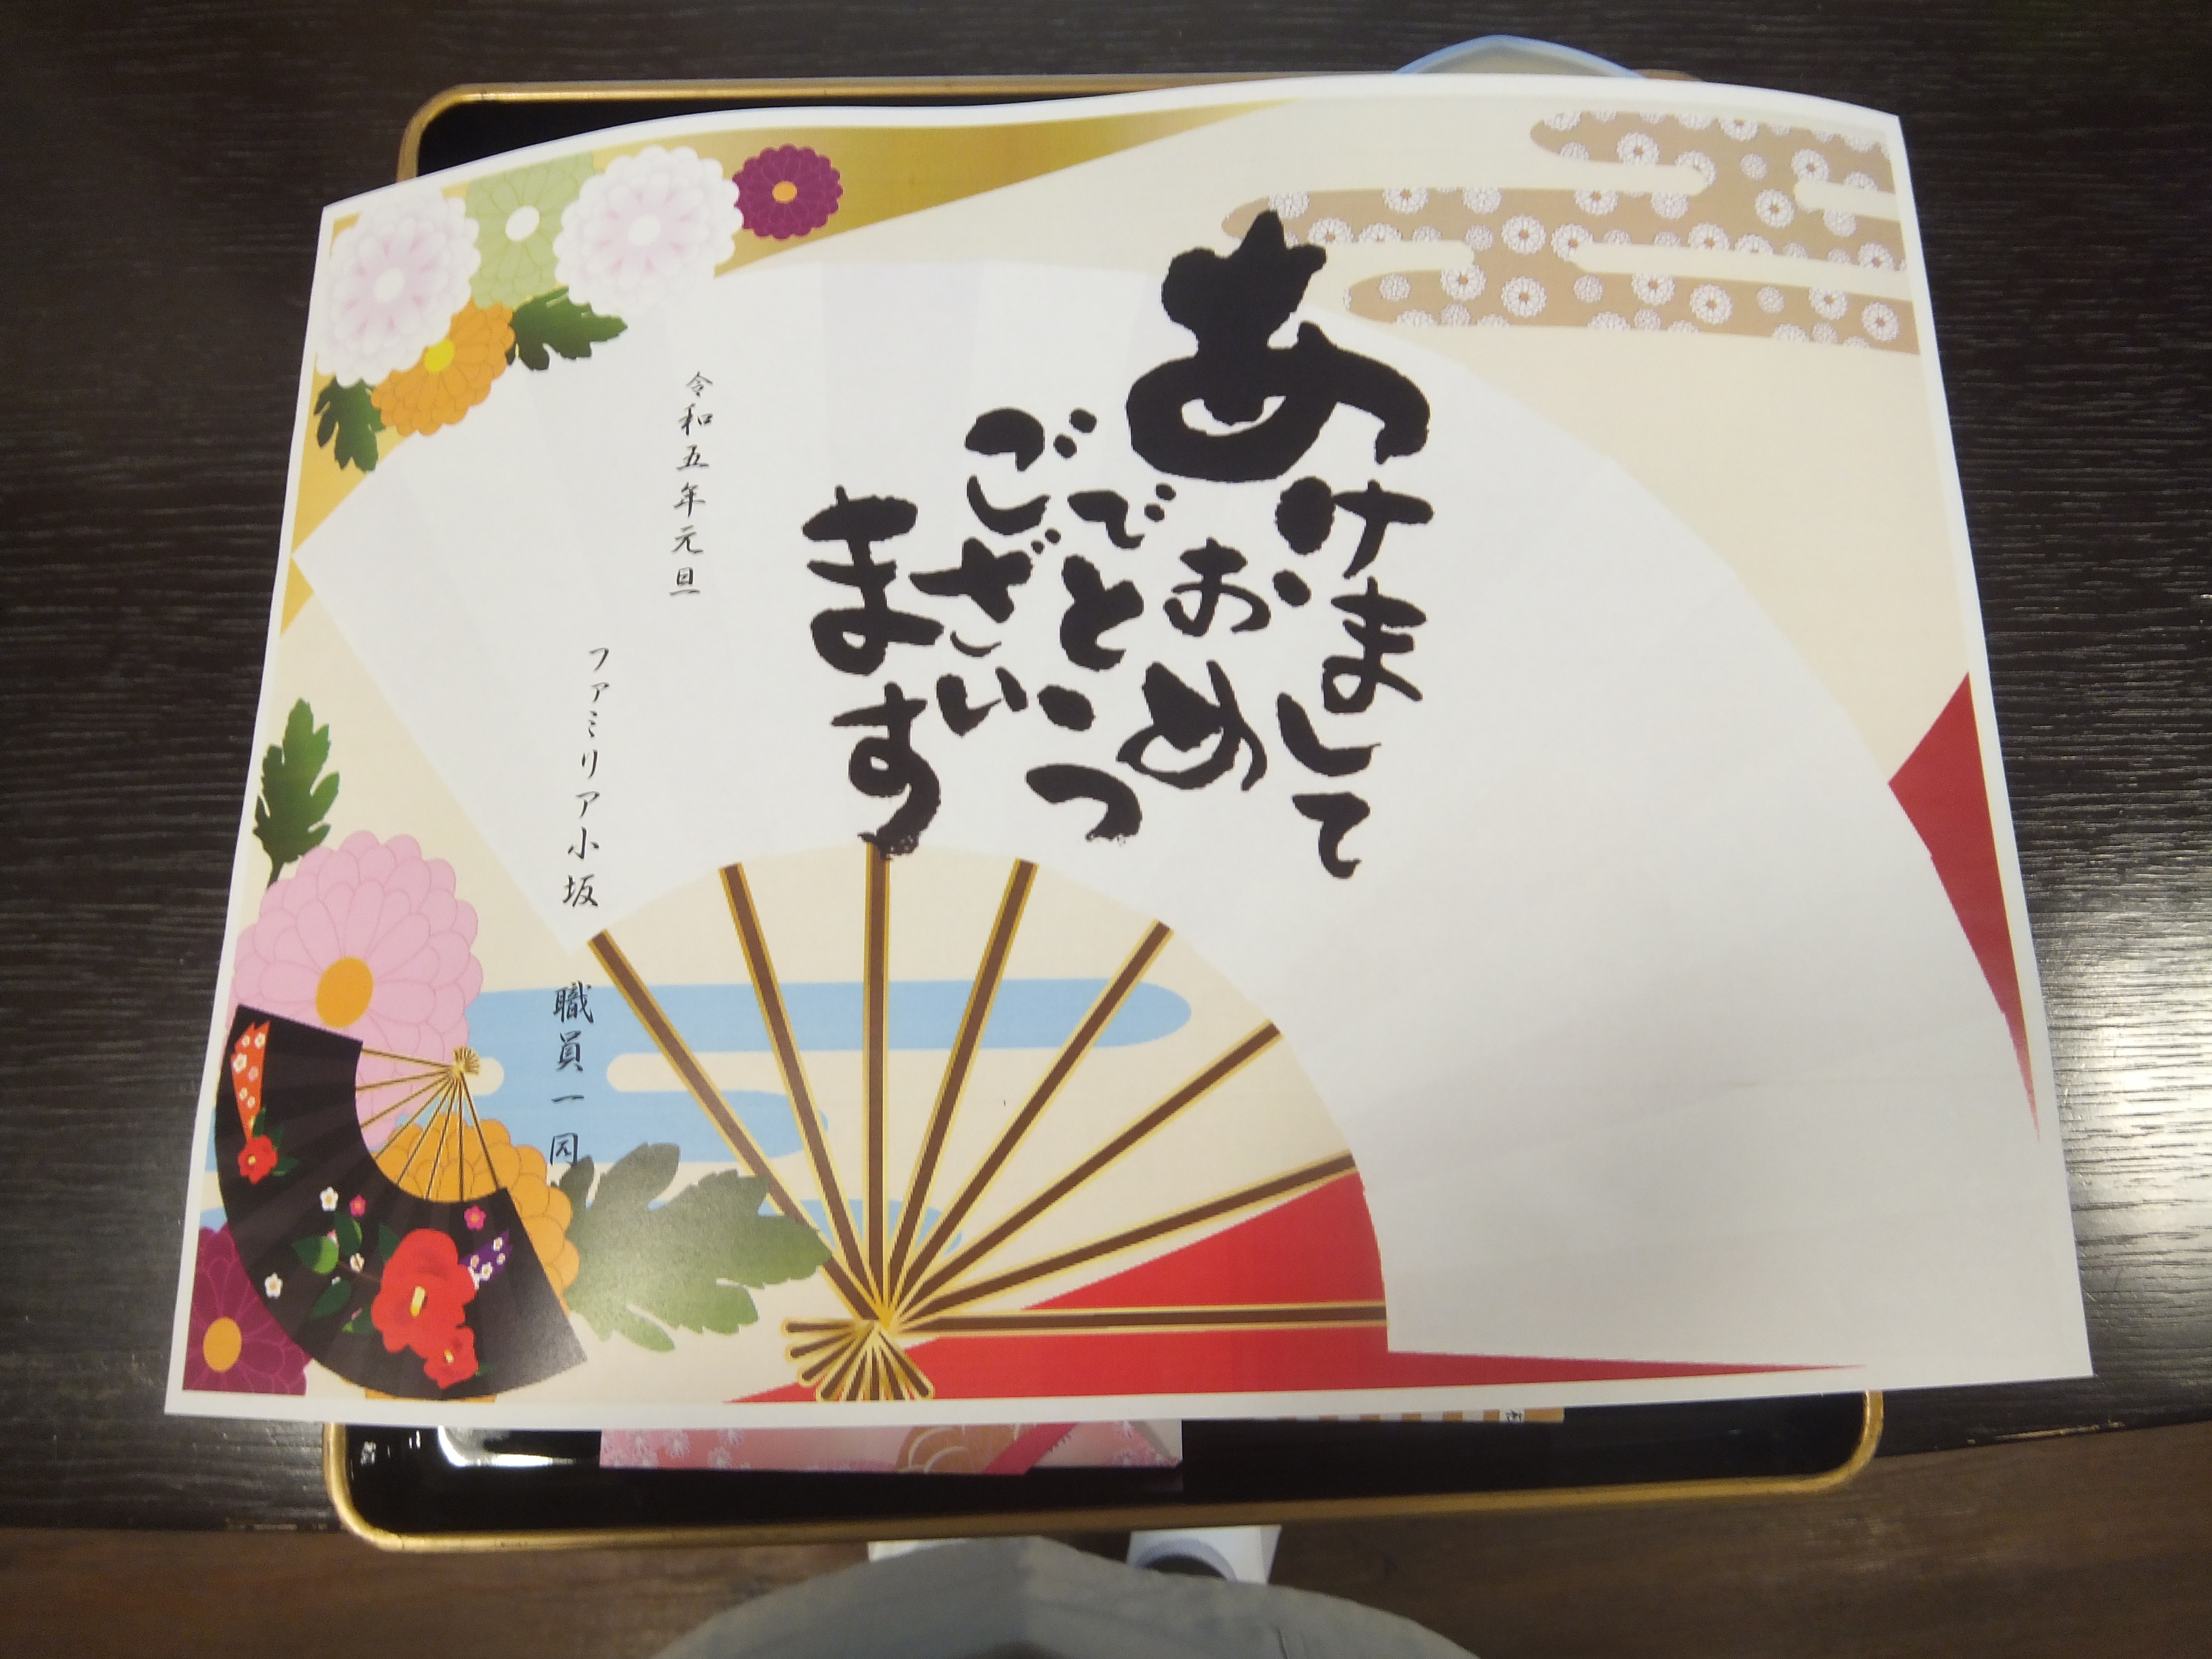 あけまして
おめ
でとう
ございます
令和五年元旦
ファミリア小坂 職員一同